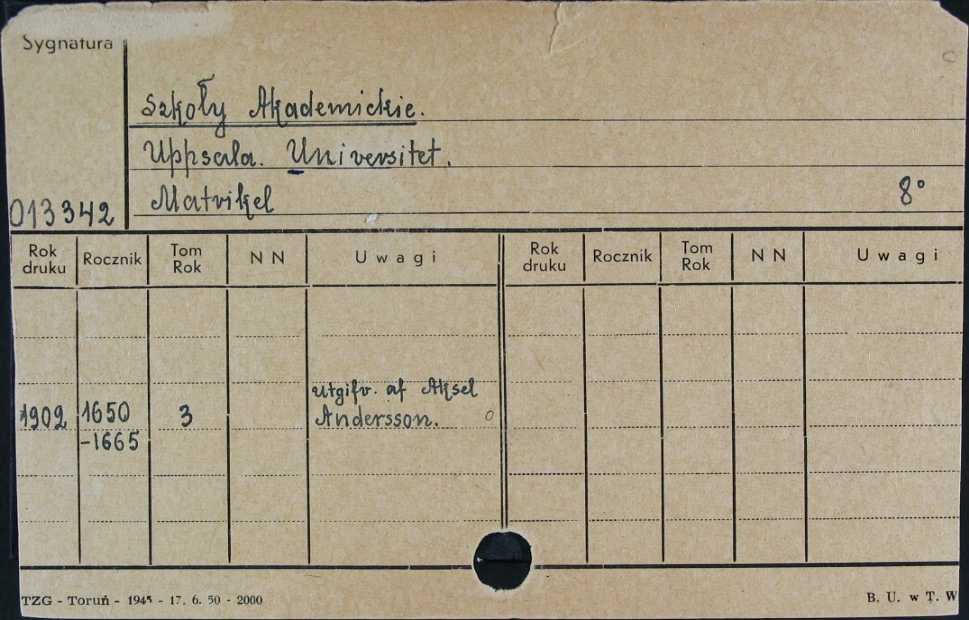 Sygnatura
Szkoły Akademickie.
Uppsala. Universitet.
Matrikel 8°
013342
Rok druku Rocznik Tom Rok N N Uwagi Rok druku Rocznik Tom Rok N N Uwagi
utgifv. af Aksel
1902 1650 3 Andersson.
-1665
TZG - Toruń - 1945 - 17. 6. 50 - 2000 B. U. w T. W